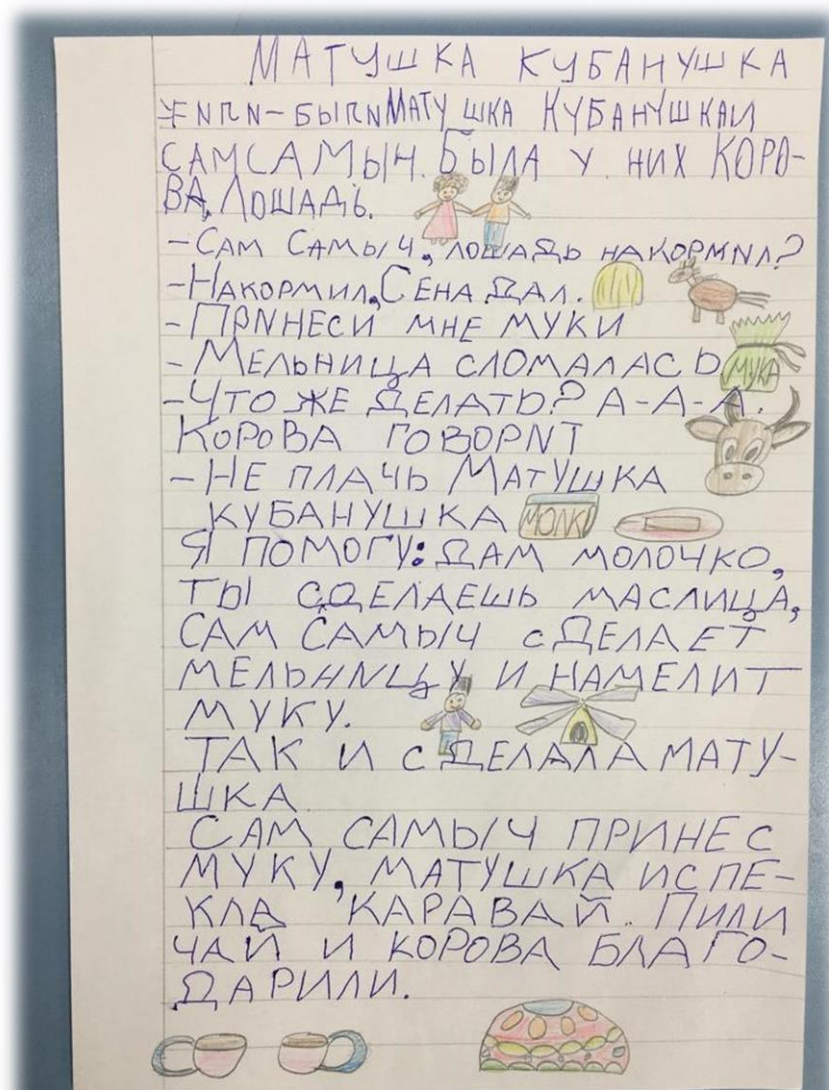 МАТУШКА КУБАНУШКА
ЖИЛИ-БЫЛИ МАТУШКА КУБАНУШКА И
САМ САМЫЧ. БЫЛА У НИХ КОРО-
ВА, ЛОШАДЬ.
-САМ САМЫЧ, ЛОШАДЬ НАКОРМИЛ?
-НАКОРМИЛ, СЕНА ДАЛ.
-ПРИНЕСИ МНЕ МУКИ
-МЕЛЬНИЦА СЛОМАЛАСЬ МУКА
-ЧТО ЖЕ ДЕЛАТЬ? А-А-А.
КОРОВА ГОВОРИТ
-НЕ ПЛАЧЬ МАТУШКА
КУБАНУШКА МОЛК
Я ПОМОГУ: ДАМ МОЛОЧКО,
ТЫ СДЕЛАЕШЬ МАСЛИЦА,
САМ САМЫЧ сДЕЛАЕТ
МЕЛЬНИЦУ И НАМЕЛИТ
МУКУ.
ТАК И сДЕЛАЛА МАТУ-
ШКА.
САМ САМЫЧ ПРИНЕС
МУКУ, МАТУШКА ИСПЕ-
КЛА КАРАВАЙ. ПИЛИ
ЧАЙ И КОРОВА БЛАГО-
ДАРИЛИ.